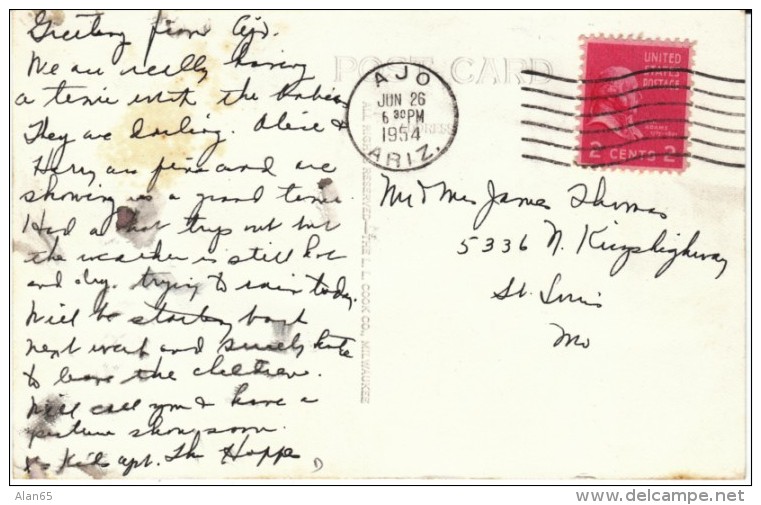 Greetings from Ajo.
We are really having
a time with the babies
They are darling. Alice &
Harry are fine and are
showing us a grand time
Had a hot trip out but
the weather is still hot
and dry. trying to rain today.
Will be starting back
next week and surely hate
to leave the children.
Will call you & have a
picture show soon.
The Hoppes
POST CARD
ADDRESS
ALL RIGHTS RESERVED—THE L. L. COOK CO., MILWAUKEE
AJO
JUN 26
6 30 PM
1954
ARIZ.
UNITED
STATES
POSTAGE
ADAMS
2 CENTS 2
Mr & Mrs James Thomas
5336 N. Kingshighway
St. Louis
Mo
Alan65
www.delcampe.net